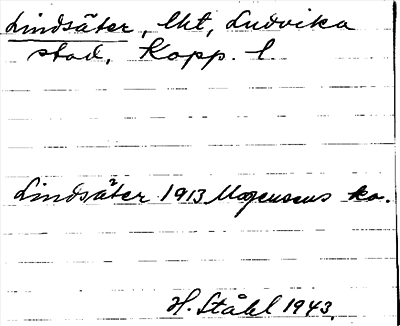 Lindsäter, lht, Ludvika
stad, Kopp. l.
Lindsäter 1913 Mogensens ka.
H. Ståhl 1943.